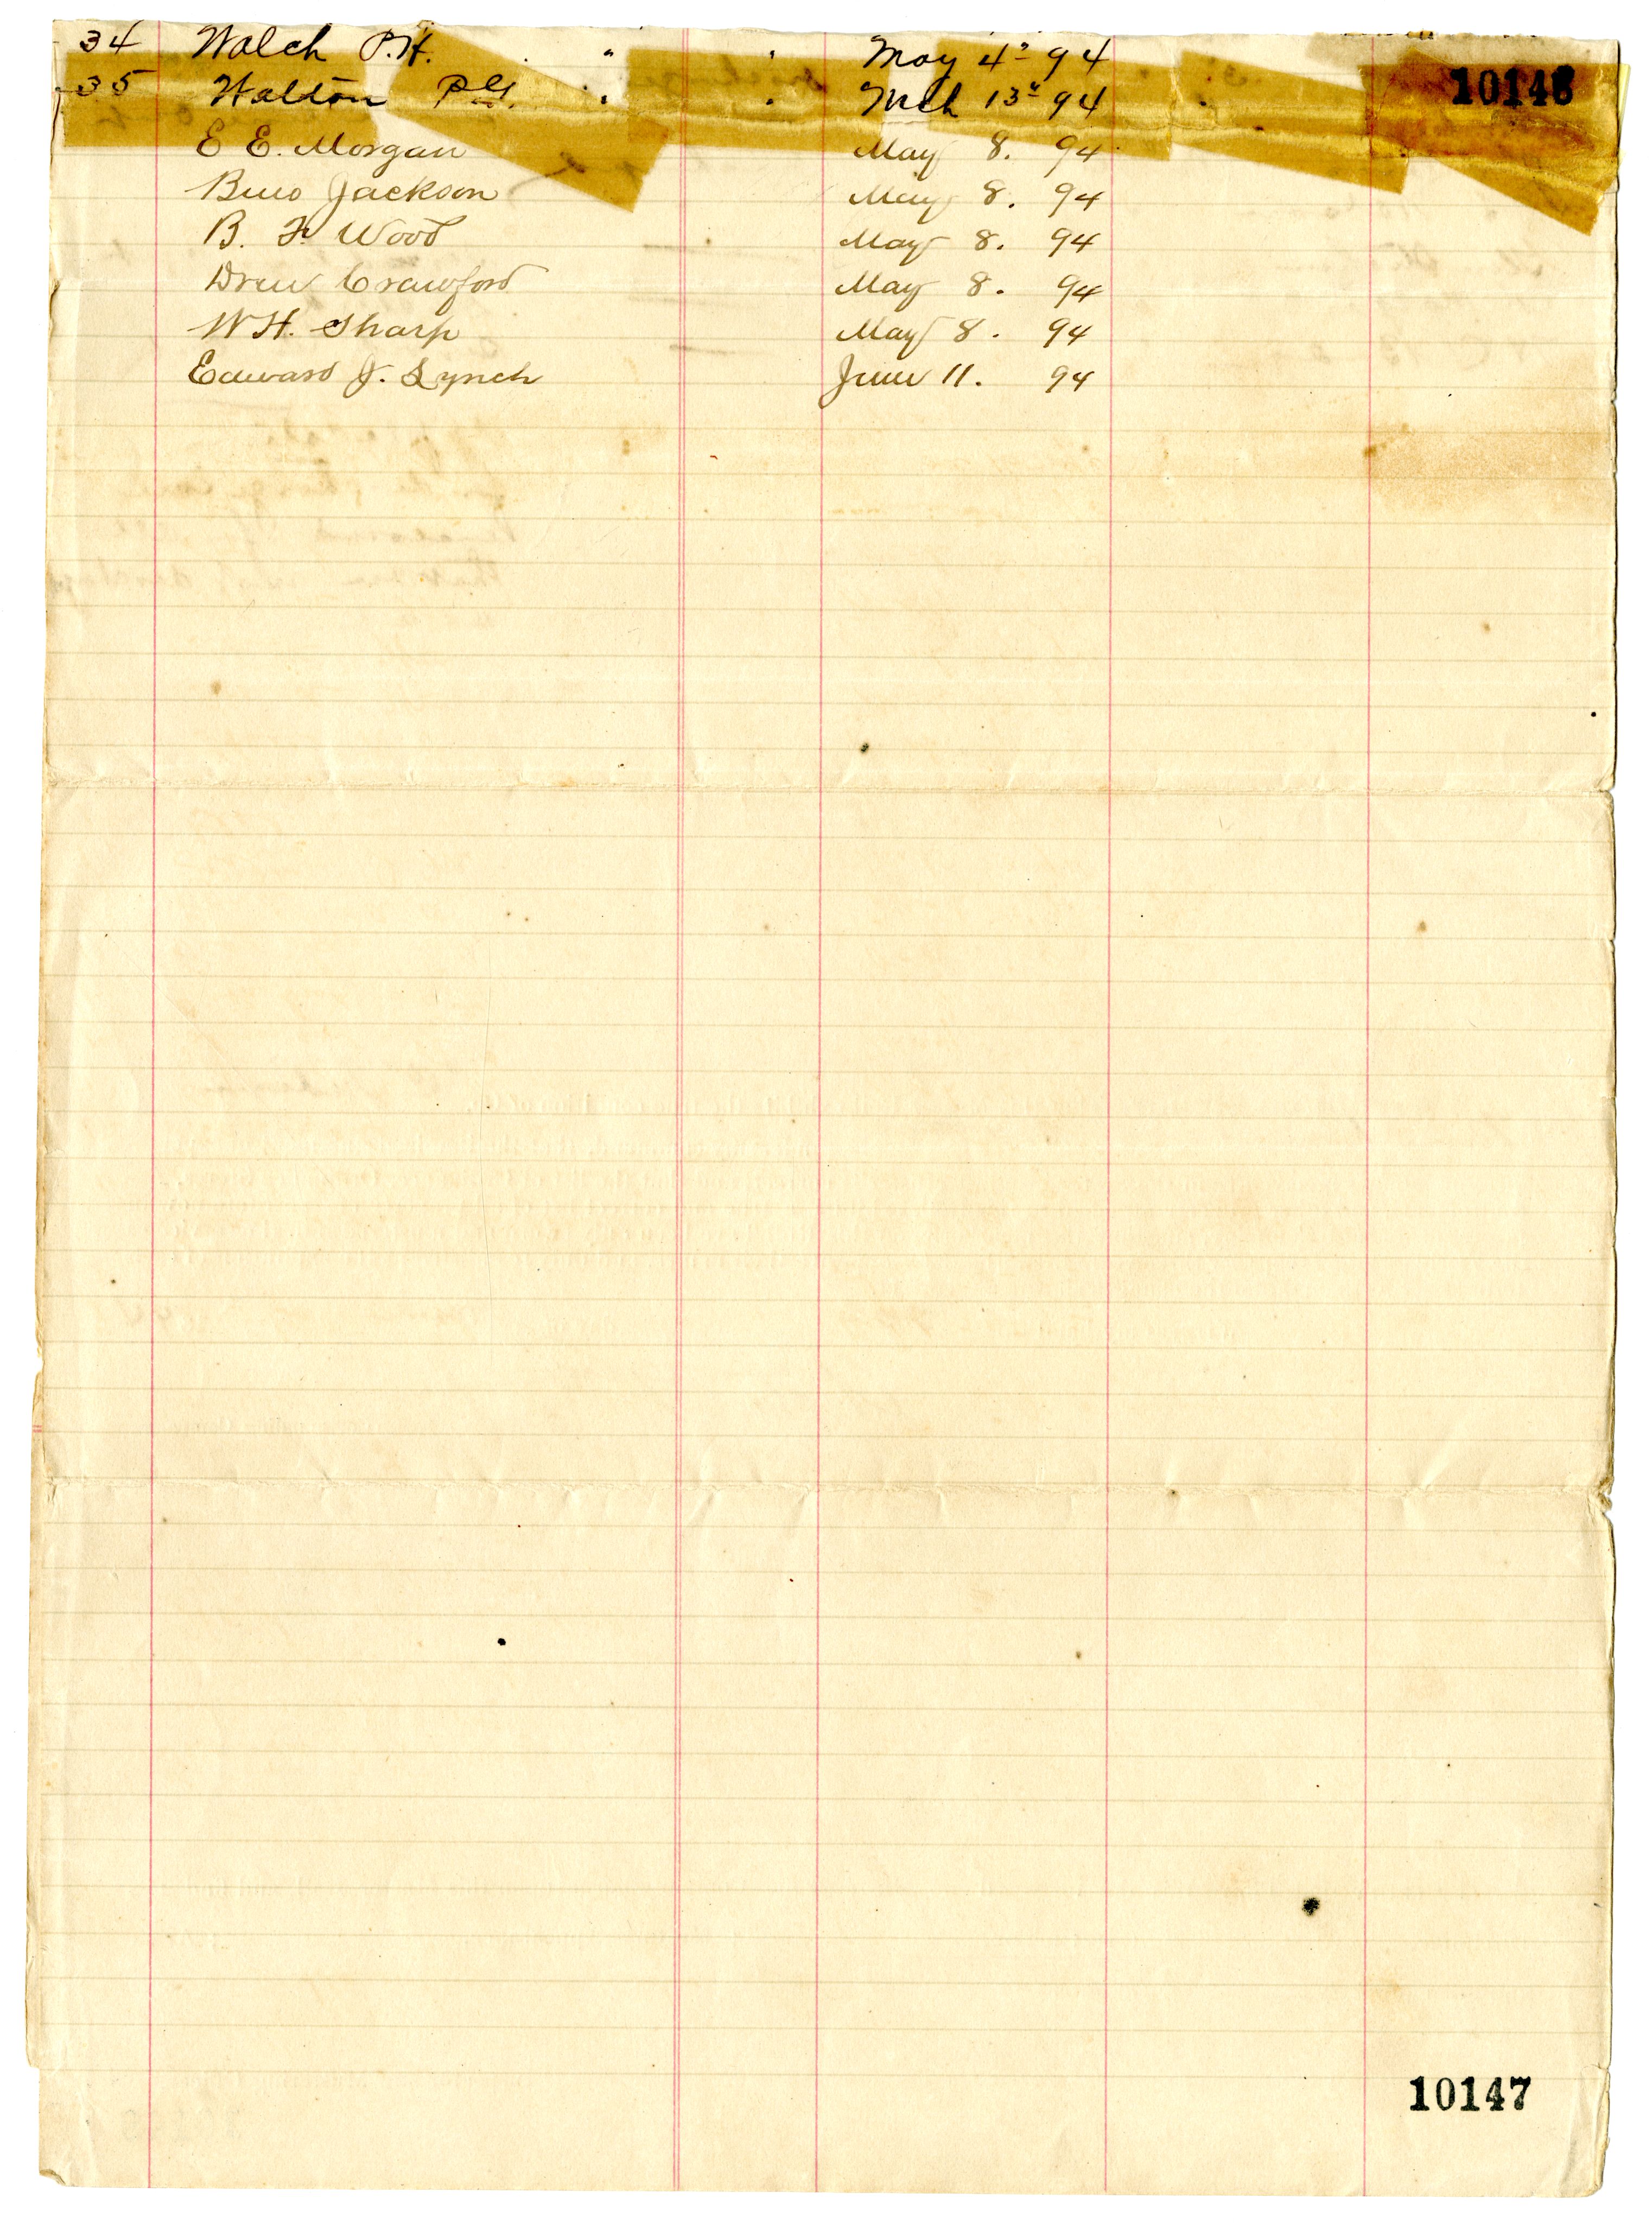 34 Walch P.H. " " May 4" 94
35 Walton P.G. " " Mch 13" 94
10146
E E. Morgan May 8. 94
Jackson May 8. 94
B. F. Wood May 8. 94
Drew Crawford May 8. 94
W H. Sharp May 8. 94
Edward J. Lynch June 11. 94
10147